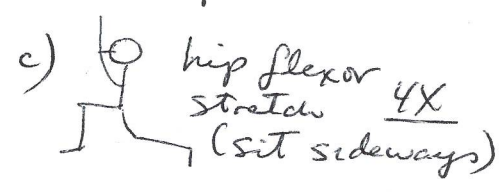 c) hip flexor
stretch 4X
(sit sideways)